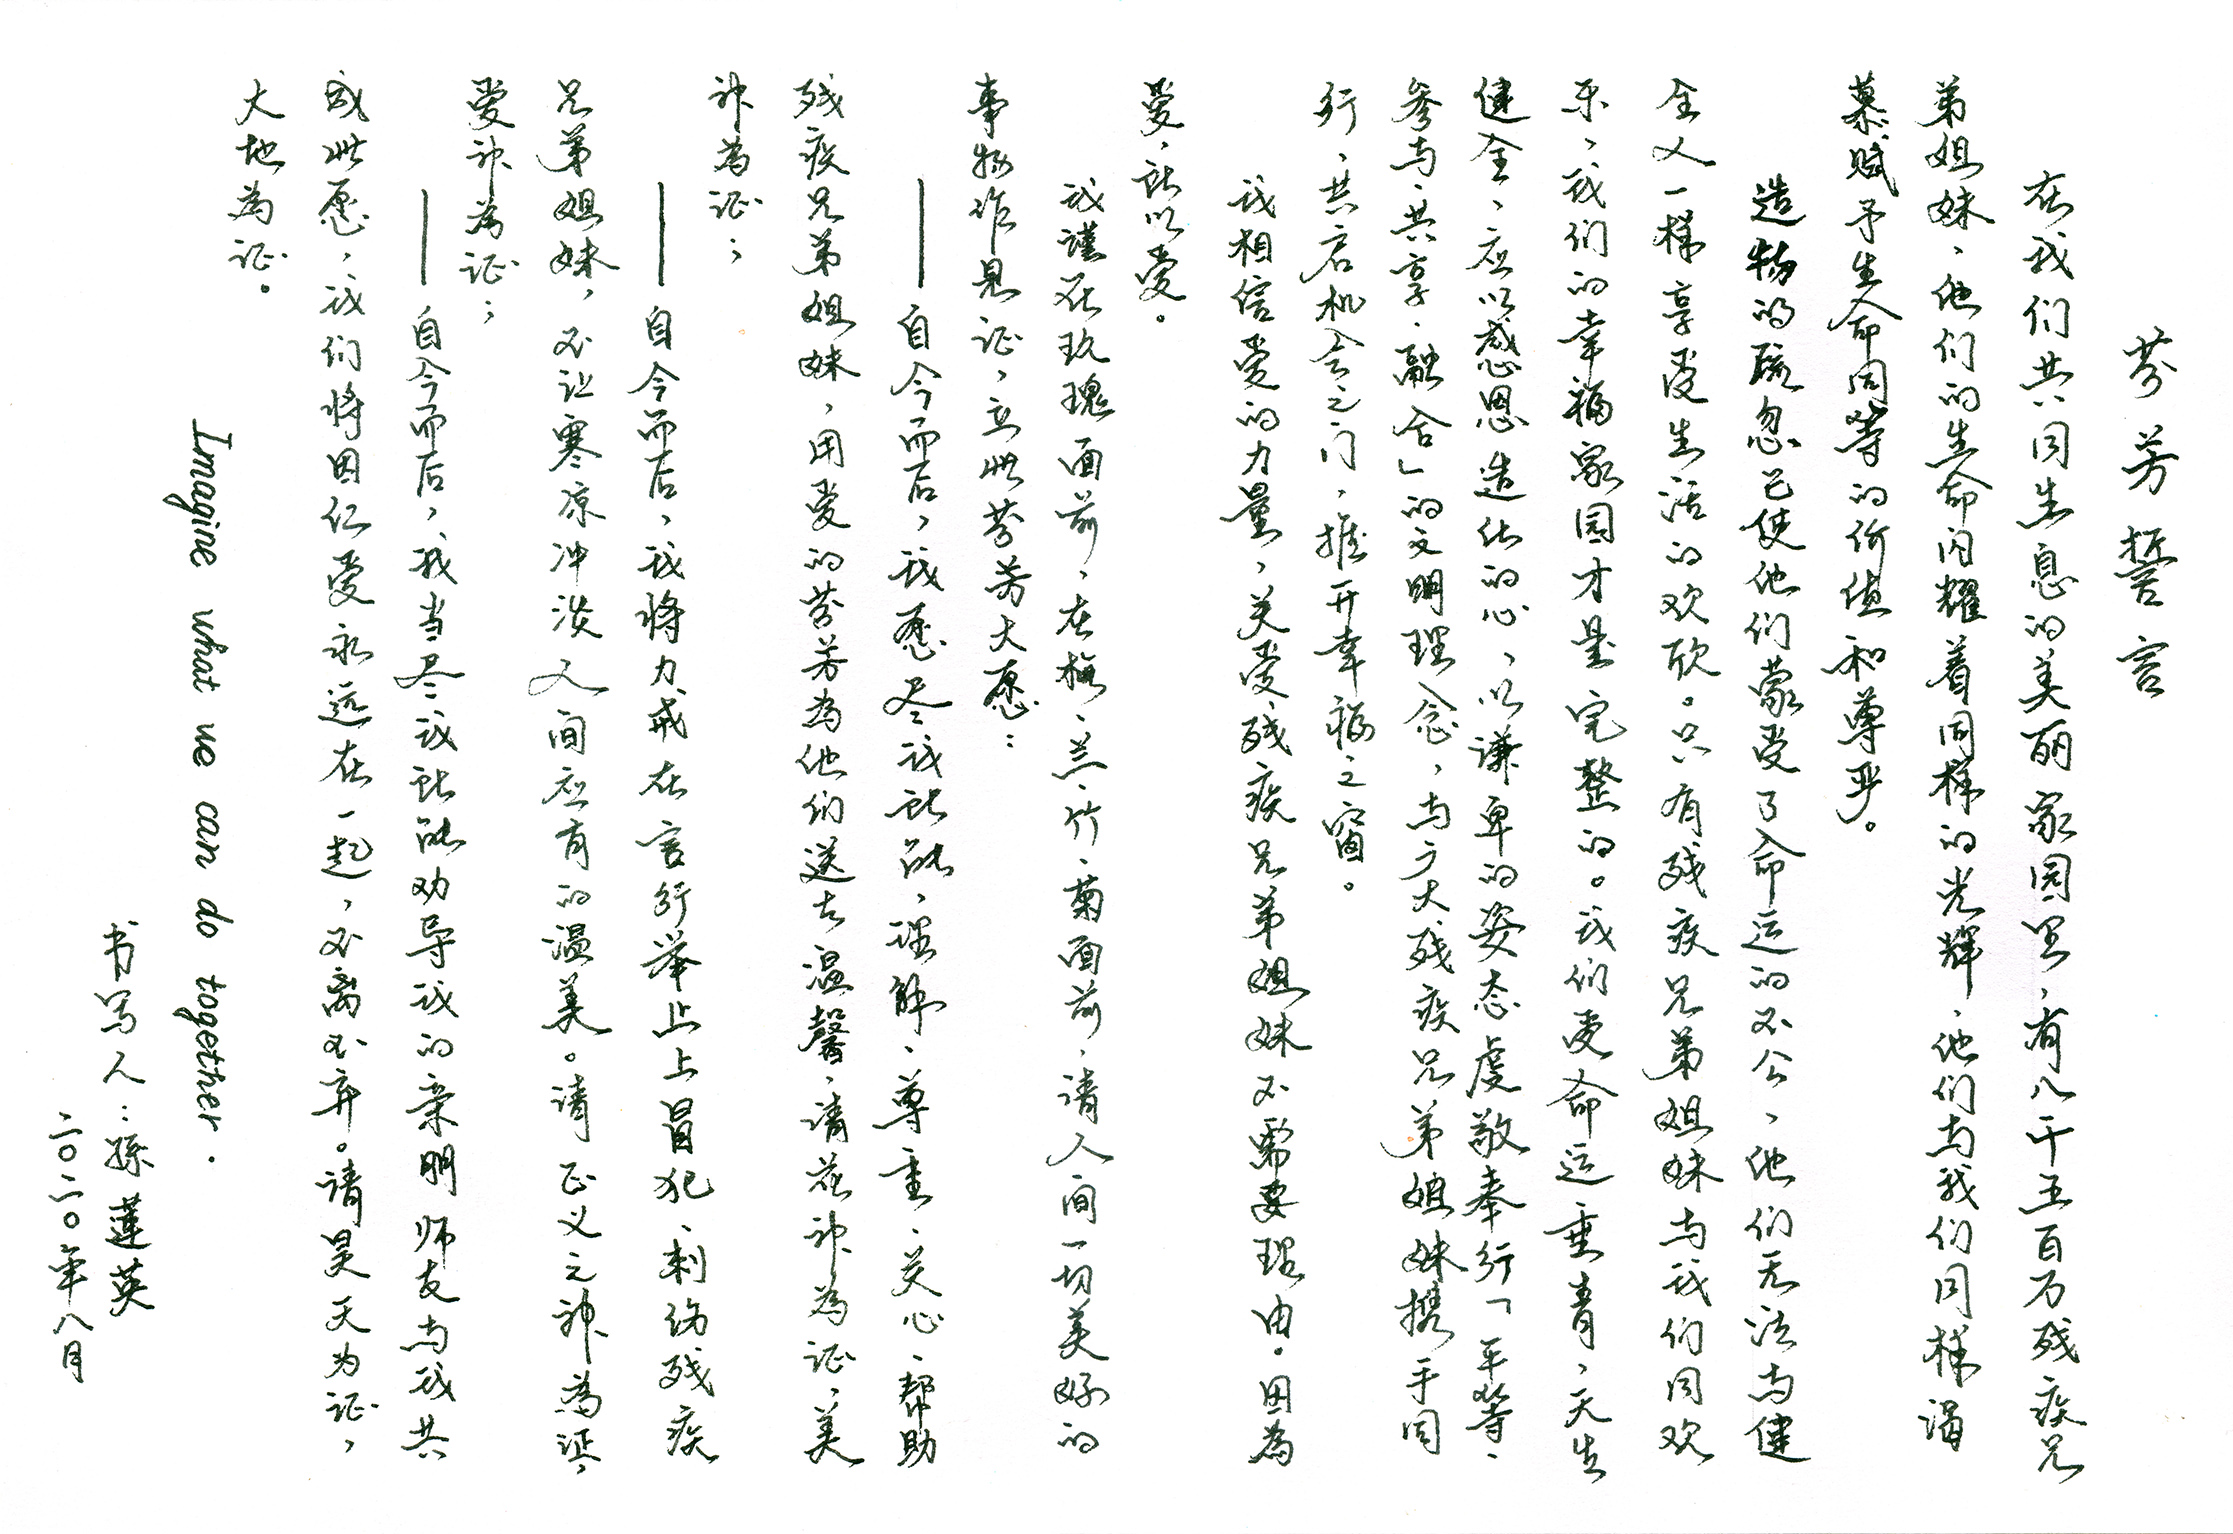 芬芳誓言
在我们共同生息的美丽家园里，有八千五百万残疾兄
弟姐妹，他们的生命闪耀着同样的光辉，他们与我们同样渴
慕赋予生命同等的价值和尊严。
造物的疏忽已使他们蒙受了命运的不公，他们无法与健
全人一样享受生活的欢欣。只有残疾兄弟姐妹与我们同欢
乐，我们的幸福家园才是完整的。我们受命运垂青，天生
健全，应以感恩造化的心，以谦卑的姿态虔敬奉行「平等、
参与、共享、融合」的文明理念，与广大残疾兄弟姐妹携手同
行，共启机会之门，推开幸福之窗。
我相信爱的力量，关爱残疾兄弟姐妹不需要理由。因为
爱，所以爱。
我谨在玫瑰面前，在梅、兰、竹、菊面前，请人间一切美好的
事物作见证，立此芬芳大愿：
——自今而后，我愿尽我所能，理解、尊重、关心、帮助
残疾兄弟姐妹，用爱的芬芳为他们送去温馨，请花神为证，美
神为证；
——自今而后，我将力戒在言行举止上冒犯、刺伤残疾
兄弟姐妹，不让寒凉冲淡人间应有的温美。请正义之神为证，
爱神为证；
——自今而后，我当尽我所能劝导我的亲朋师友与我共
成此愿，我们将因仁爱永远在一起，不离不弃。请昊天为证，
大地为证。
Imagine what we can do together.
书写人：孫蓮英
二〇二〇年八月